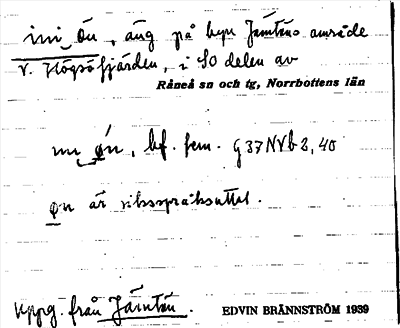 ini ön, äng på byn Jämtöns område
v. Högsöfjärden, i SO delen av
Råneå sn och tg, Norrbottens län
øn, bf. fem. G 37 NVb 2, 40
øn är riksspråksuttal.
Uppg. från Jämtön.
EDVIN BRÄNNSTRÖM 1939